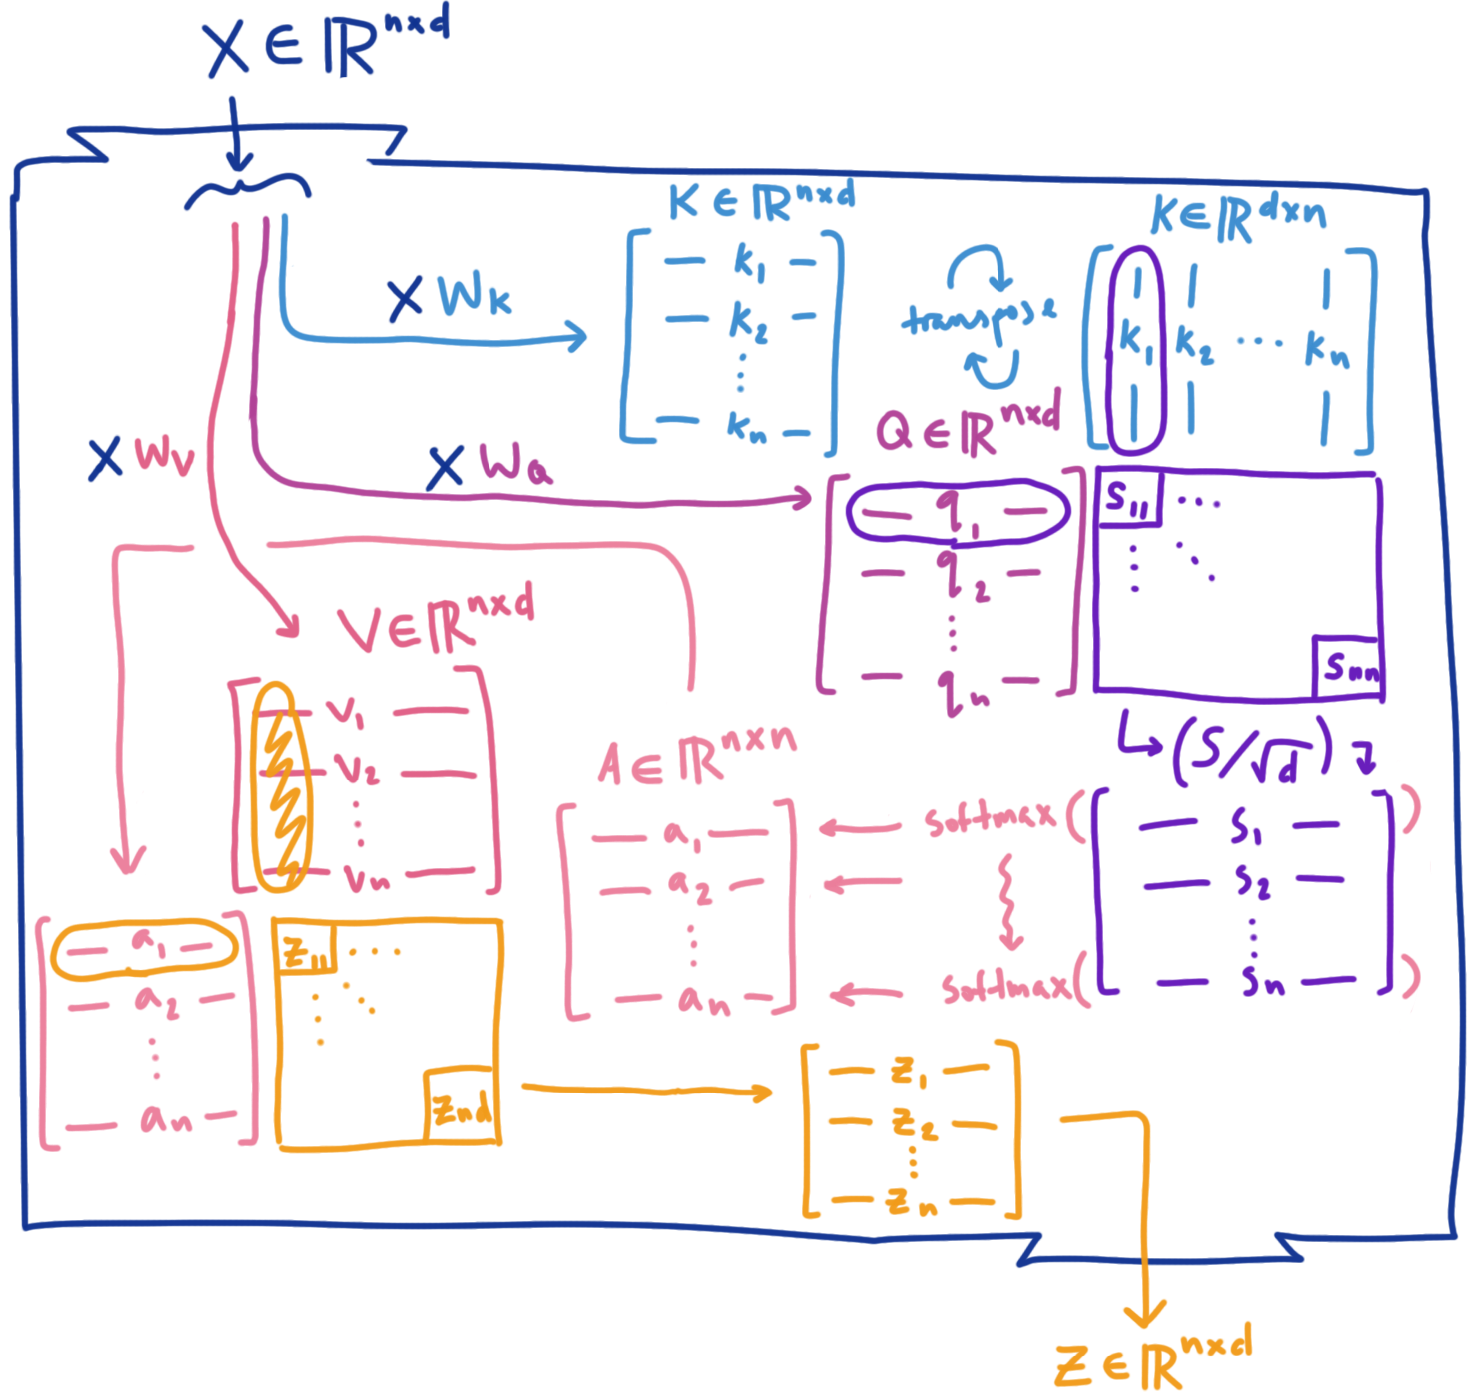 X ∈ ℝ^{n×d}
K ∈ ℝ^{n×d}
K ∈ ℝ^{d×n}
X W_K
— k_1 —
— k_2 —
⋮
— k_n —
transpose
| | |
k_1 k_2 ⋯ k_n
| | |
X W_V
X W_Q
Q ∈ ℝ^{n×d}
— q_1 —
— q_2 —
⋮
— q_n —
S_{11} ⋯
⋮ ⋱
S_{nn}
(S/√d)
V ∈ ℝ^{n×d}
— v_1 —
— v_2 —
⋮
— v_n —
A ∈ ℝ^{n×n}
— a_1 —
— a_2 —
⋮
— a_n —
softmax( )
softmax( )
— s_1 —
— s_2 —
⋮
— s_n —
— a_1 —
— a_2 —
⋮
— a_n —
z_{11} ⋯
⋮ ⋱
z_{nd}
— z_1 —
— z_2 —
⋮
— z_n —
Z ∈ ℝ^{n×d}